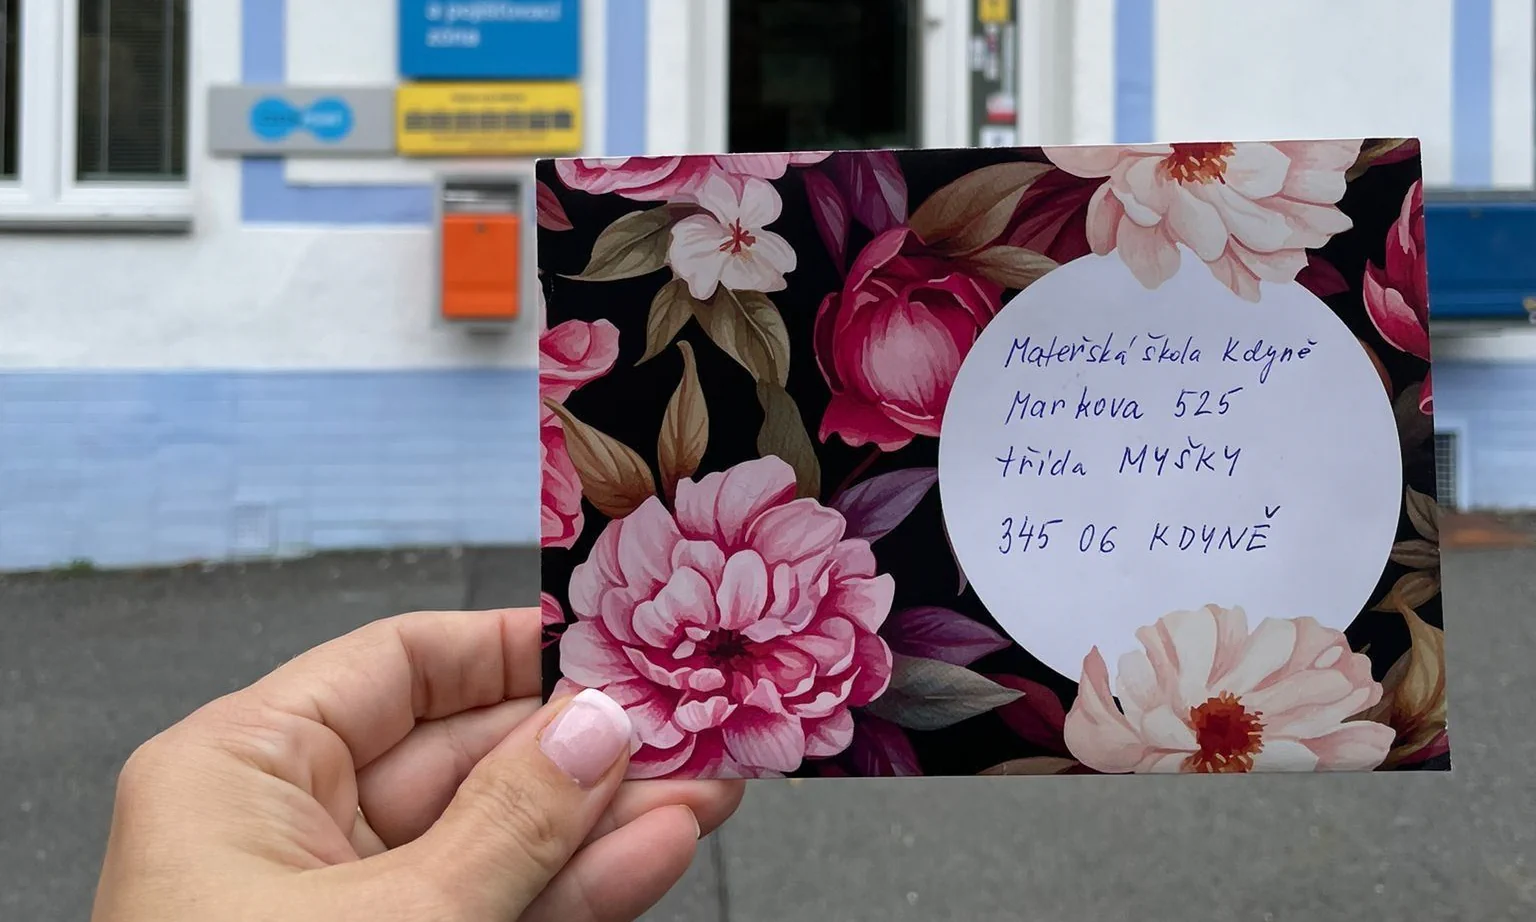 a pojišťovací
zóna
Mateřská škola Kdyně
Markova 525
třída MYŠKY
345 06 KDYNĚ